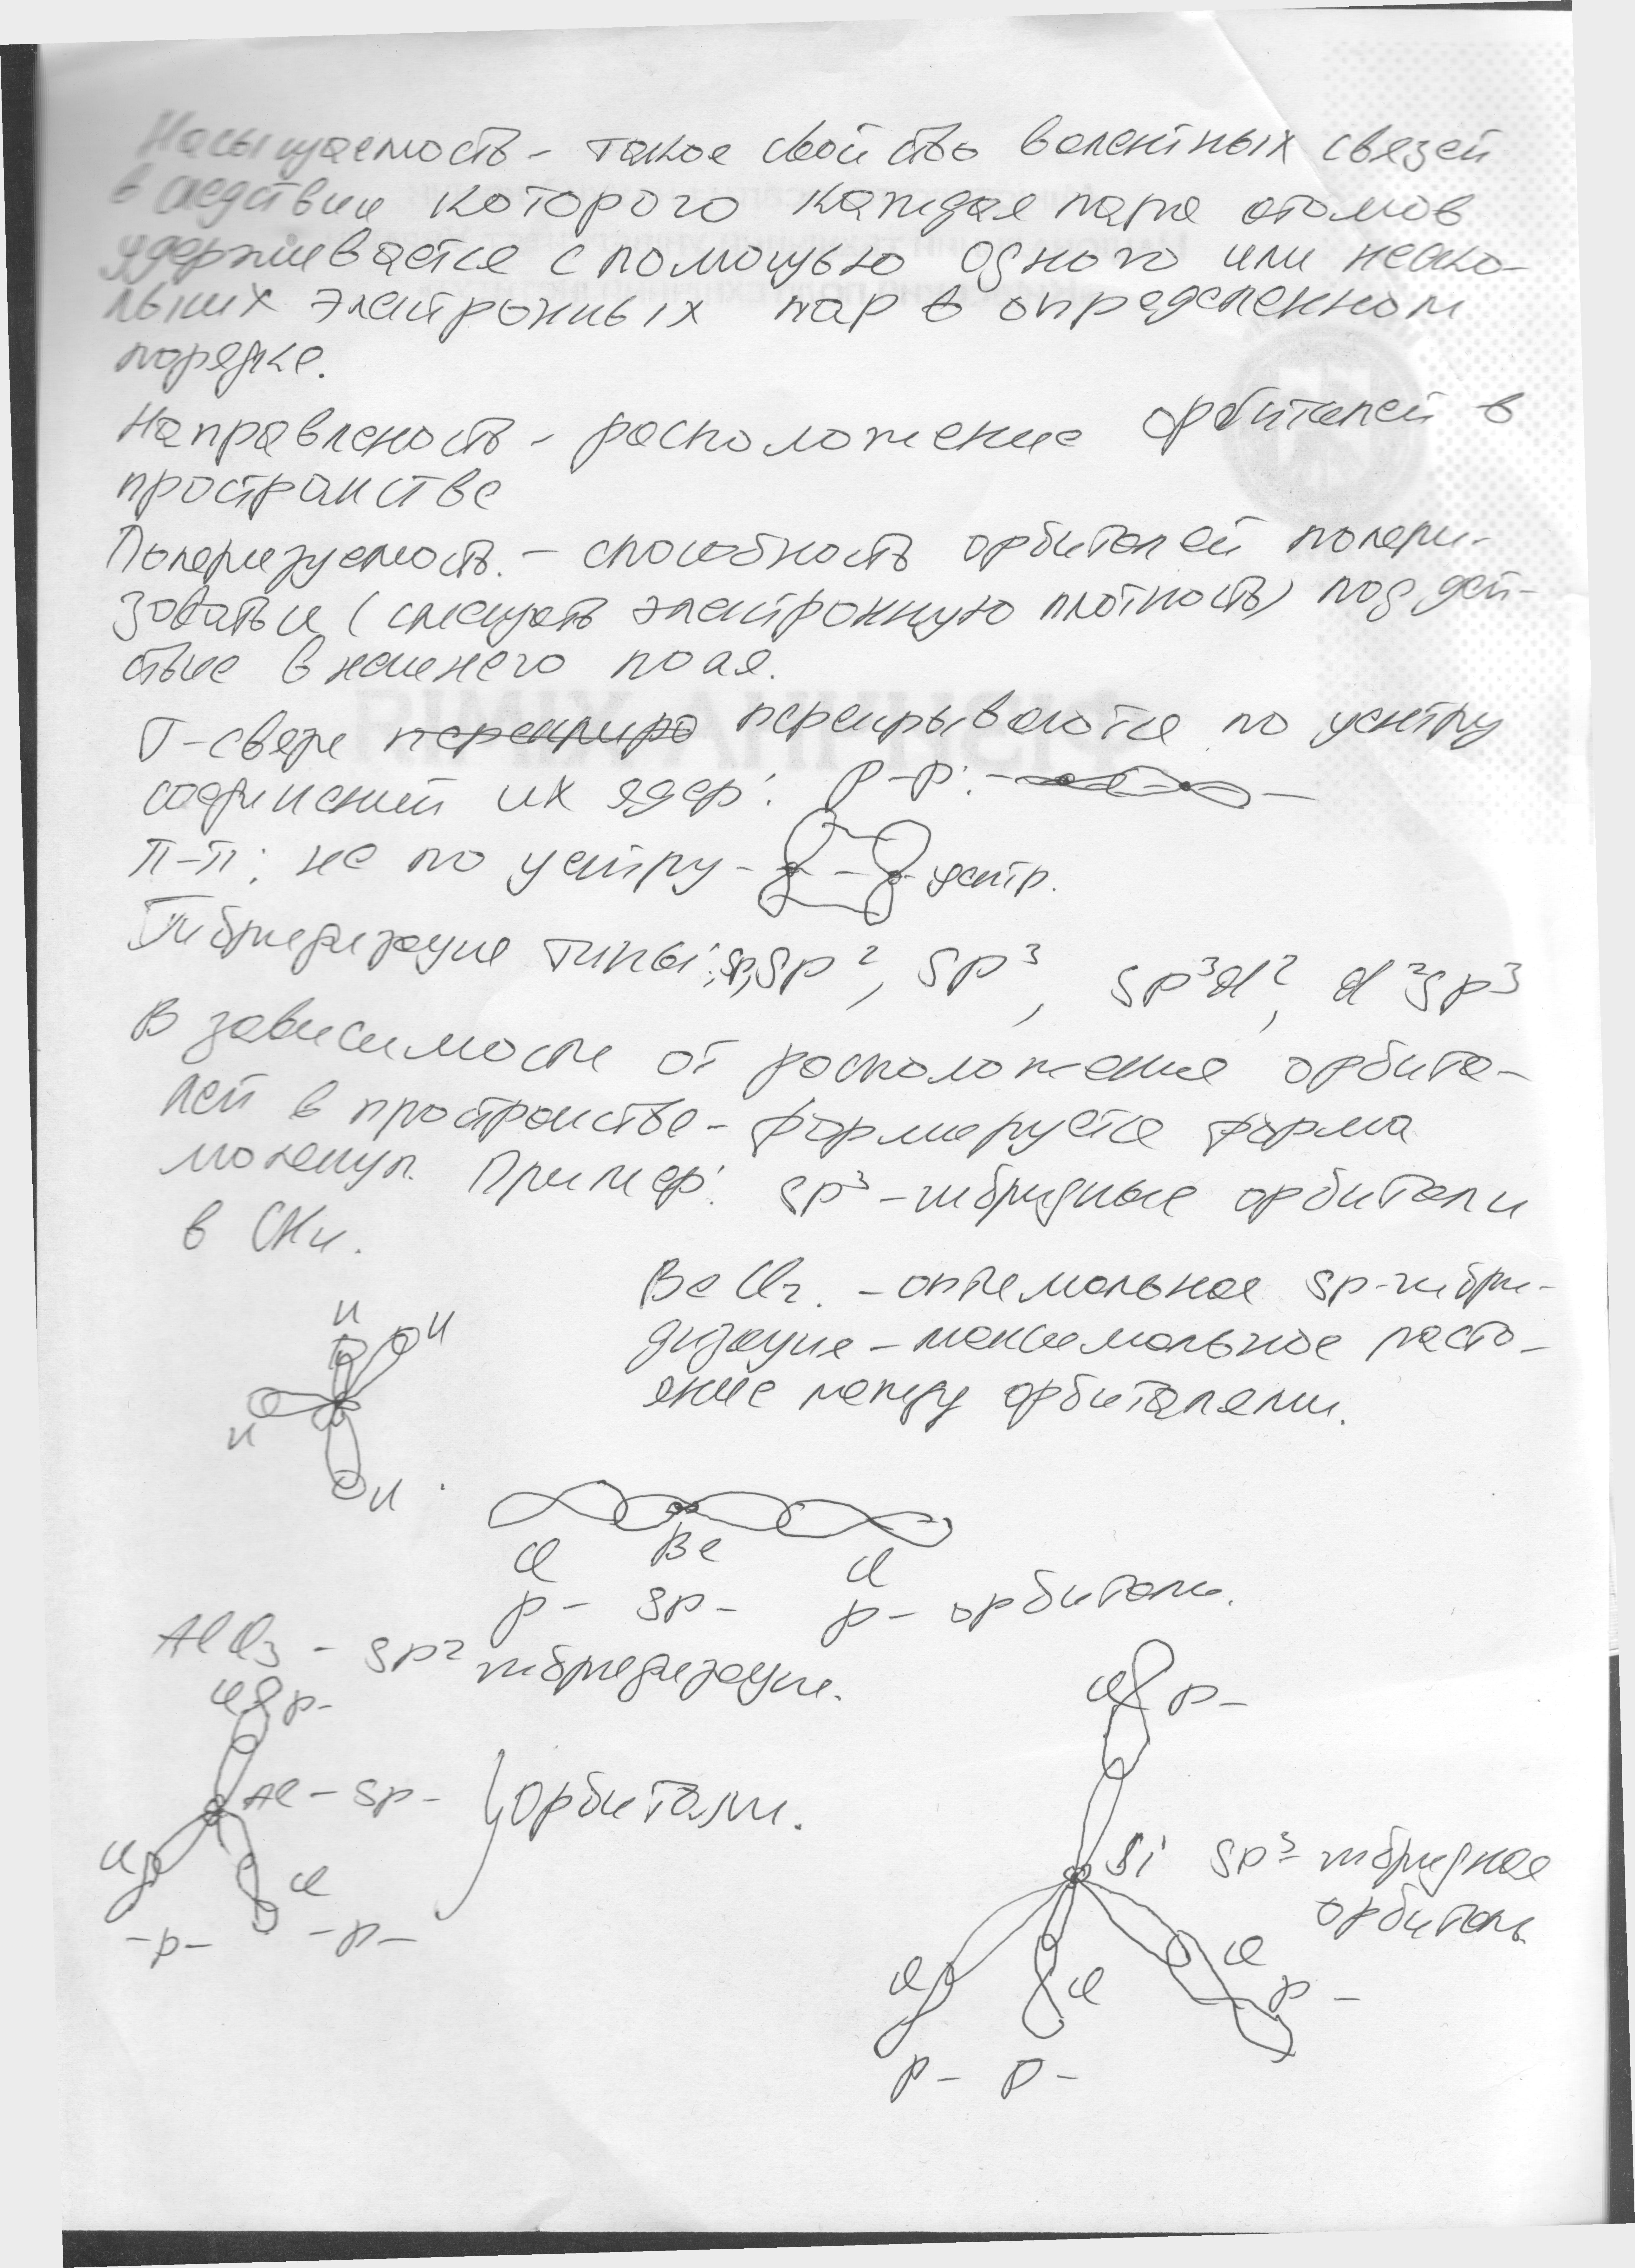 Насыщаемость - такое свойство валентных связей
в следствии которого каждая пара атомов
удерживается с помощью одного или неско-
льких электронных пар в определенном
порядке.
Направленость - расположение орбиталей в
пространстве
Поляризуемость. - способность орбиталей поляри-
зоваться (смещать электронную плотность) под дей-
ствие внешнего поля.
σ-связи перекрываются по центру
соединений их ядер: p-p:
π-π: не по центру - центр.
Гибридизация типы: sp, sp², sp³, sp³d², d²sp³
В зависимости от расположения орбита-
лей в пространстве - формируется форма
молекул. Пример: sp³-гибридные орбитали
в CH₄.
BeCl₂. - оптемальная sp-гибри-
дизация - максимальное расто-
яние между орбиталями.
H H
H
H
Cl Be Cl
p- sp- p- орбитали.
AlCl₃ - sp² гибридизация.
Cl p-
Al - sp- орбитали.
Cl Cl
-p- -p-
Cl p-
Si sp³-гибридная
орбиталь
Cl Cl Cl
p-
p- p-